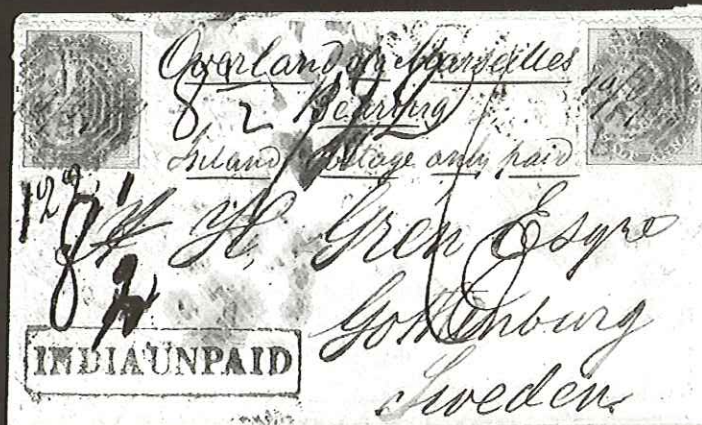 Overland via Marseilles
8 2 Bearing
Inland Postage only paid
H. Grén Esqre
Gottenburg
Sweden
8
2
INDIA UNPAID